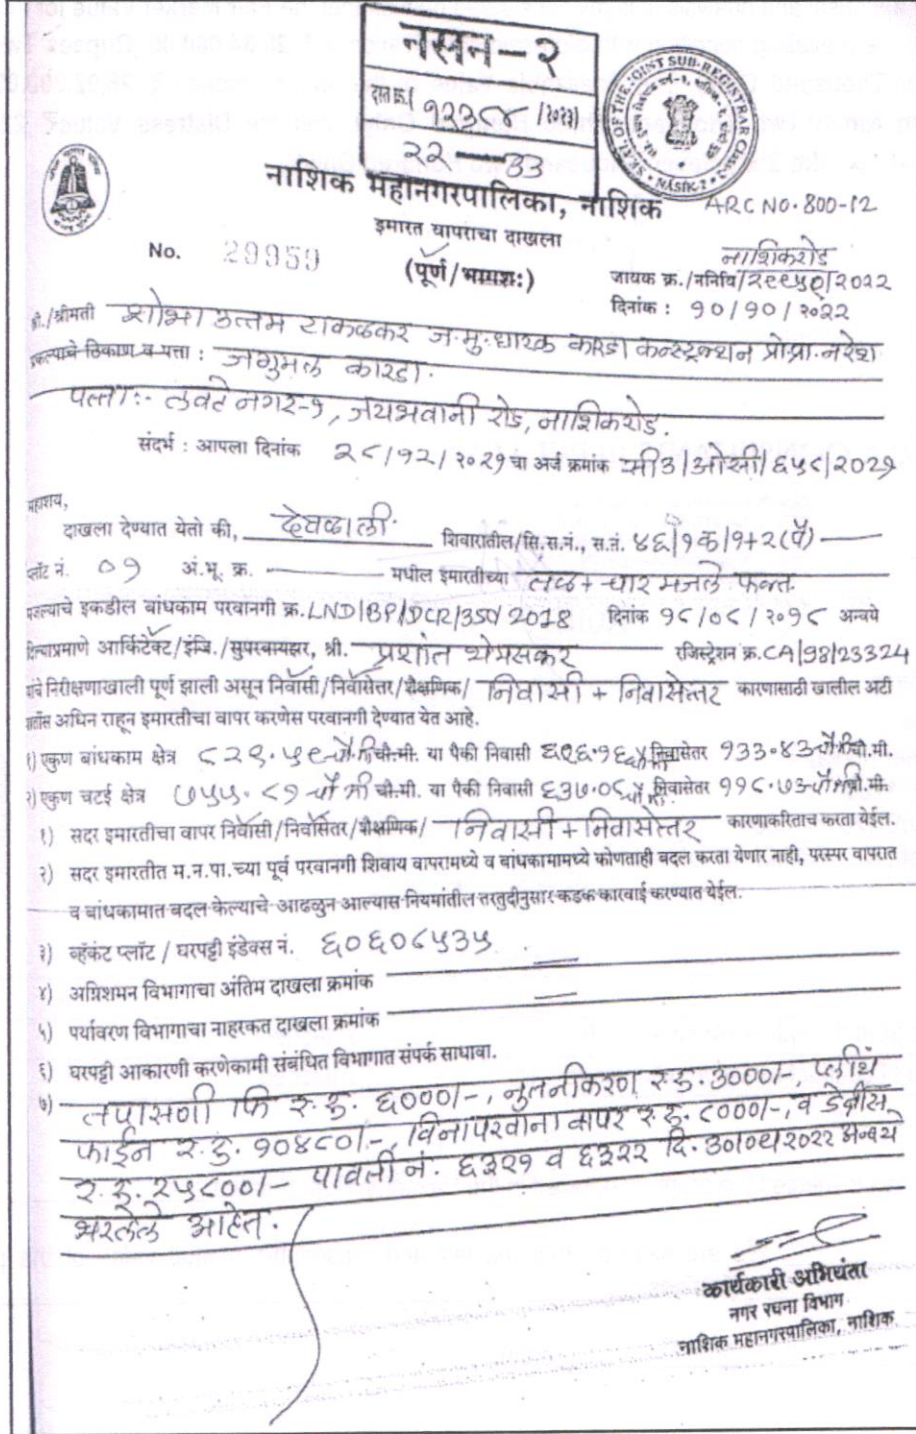 नसन-२
दस्त क्र.( /२०२३)
२२-८३
SEAL OF THE JOINT SUB-REGISTRAR CLASS-2
NASIK-2
नाशिक महानगरपालिका, नाशिक
ARC NO. 800-12
इमारत वापराचा दाखला
No. 29959
(पूर्ण/भागशः)
नाशिकरोड
जावक क्र./ननिवि/२९९५०/2022
दिनांक : १०/१०/२०२२
श्री./श्रीमती शोभा उत्तम टाकळकर ज.मु.धारक कारडा कन्स्ट्रक्शन प्रोप्रा. नरेश
प्रकल्पाचे ठिकाण व पत्ता : जगुमल कारडा.
पत्ताः- लवटे नगर-१, जयभवानी रोड, नाशिकरोड.
संदर्भ : आपला दिनांक २८/१२/२०२१ चा अर्ज क्रमांक सी३/ओसी/६५८/2029
महाशय,
दाखला देण्यात येतो की, देवळाली शिवारातील/सि.स.नं., स.नं. ४६/१क/१+२(पै)
प्लॉट नं. ०१ अं.भू. क्र. मधील इमारतीच्या तळ + चार मजले फक्त
मजल्याचे इकडील बांधकाम परवानगी क्र. LND/BP/DCR/ 2018 दिनांक १८/०८/२०१८ अन्वये
दिल्याप्रमाणे आर्किटेक्ट/इंजि./सुपरवायझर, श्री. प्रशांत रजिस्ट्रेशन क्र. CA/98/23324
यांचे निरीक्षणाखाली पूर्ण झाली असून निवासी/निवासेत्तर/शैक्षणिक/ निवासी + निवासेत्तर कारणासाठी खालील अटी
शर्तीस अधिन राहून इमारतीचा वापर करणेस परवानगी देण्यात येत आहे.
१) एकुण बांधकाम क्षेत्र ८२९.५९ चौ.मी चौ.मी. या पैकी निवासी ६९६.१६ चौ.मी. निवासेतर १३३.४३ चौ.मी चौ.मी.
२) एकुण चटई क्षेत्र ७५५.८१ चौ मी चौ.मी. या पैकी निवासी ६३७.०८ चौ.मी. निवासेतर ११८.७३ चौ मी चौ.मी.
१) सदर इमारतीचा वापर निवासी/निवासेतर/शैक्षणिक/ निवासी + निवासेत्तर कारणाकरिताच करता येईल.
२) सदर इमारतीत म.न.पा.च्या पूर्व परवानगी शिवाय वापरामध्ये व बांधकामामध्ये कोणताही बदल करता येणार नाही, परस्पर वापरात
व बांधकामात बदल केल्याचे आढळुन आल्यास नियमांतील तरतुदीनुसार कडक कारवाई करण्यात येईल.
३) व्हॅकंट प्लॉट / घरपट्टी इंडेक्स नं. ६०६०८५३५
४) अग्निशमन विभागाचा अंतिम दाखला क्रमांक
५) पर्यावरण विभागाचा नाहरकत दाखला क्रमांक
६) घरपट्टी आकारणी करणेकामी संबंधित विभागात संपर्क साधावा.
७) तपासणी फि र.रु. ६०००/-, नुतनीकरण र.रु. ३०००/-, प्लींथ
फाईन र.रु. १०४८०/-, विनापरवाना वापर र.रु. ८०००/-, व डेब्रीस
र.रु. २५८००/- पावती नं. ६३२१ व ६३२२ दि. ३०/०९/२०२२ अन्वये
भरलेले आहेत.
कार्यकारी अभियंता
नगर रचना विभाग
नाशिक महानगरपालिका, नाशिक